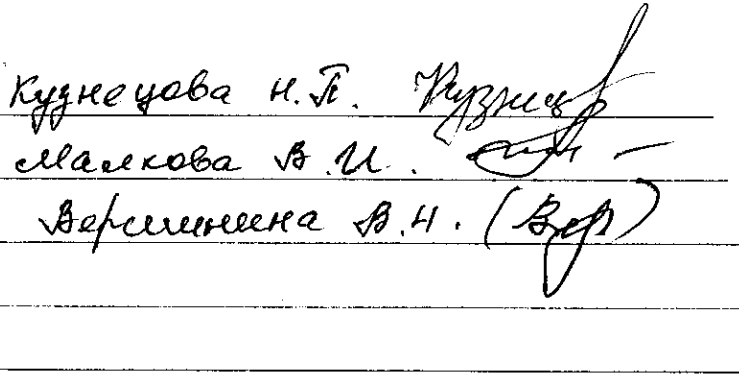 Кузнецова Н.П. Кузнец
Малкова В.И.
Вершинина В.Н. (Вер)